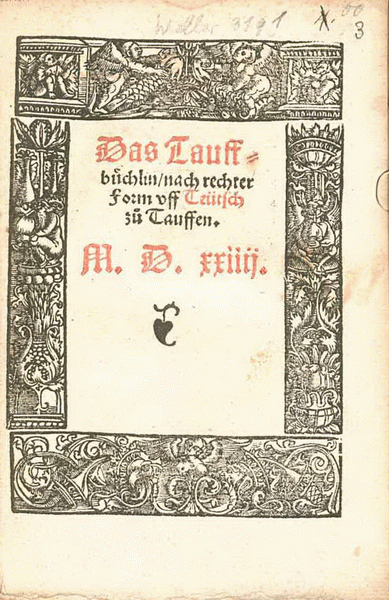 3
Das Tauff⸗
bůchlin/nach rechter
Form vff Teütsch
zů Tauffen.
M. D. xxiiij.